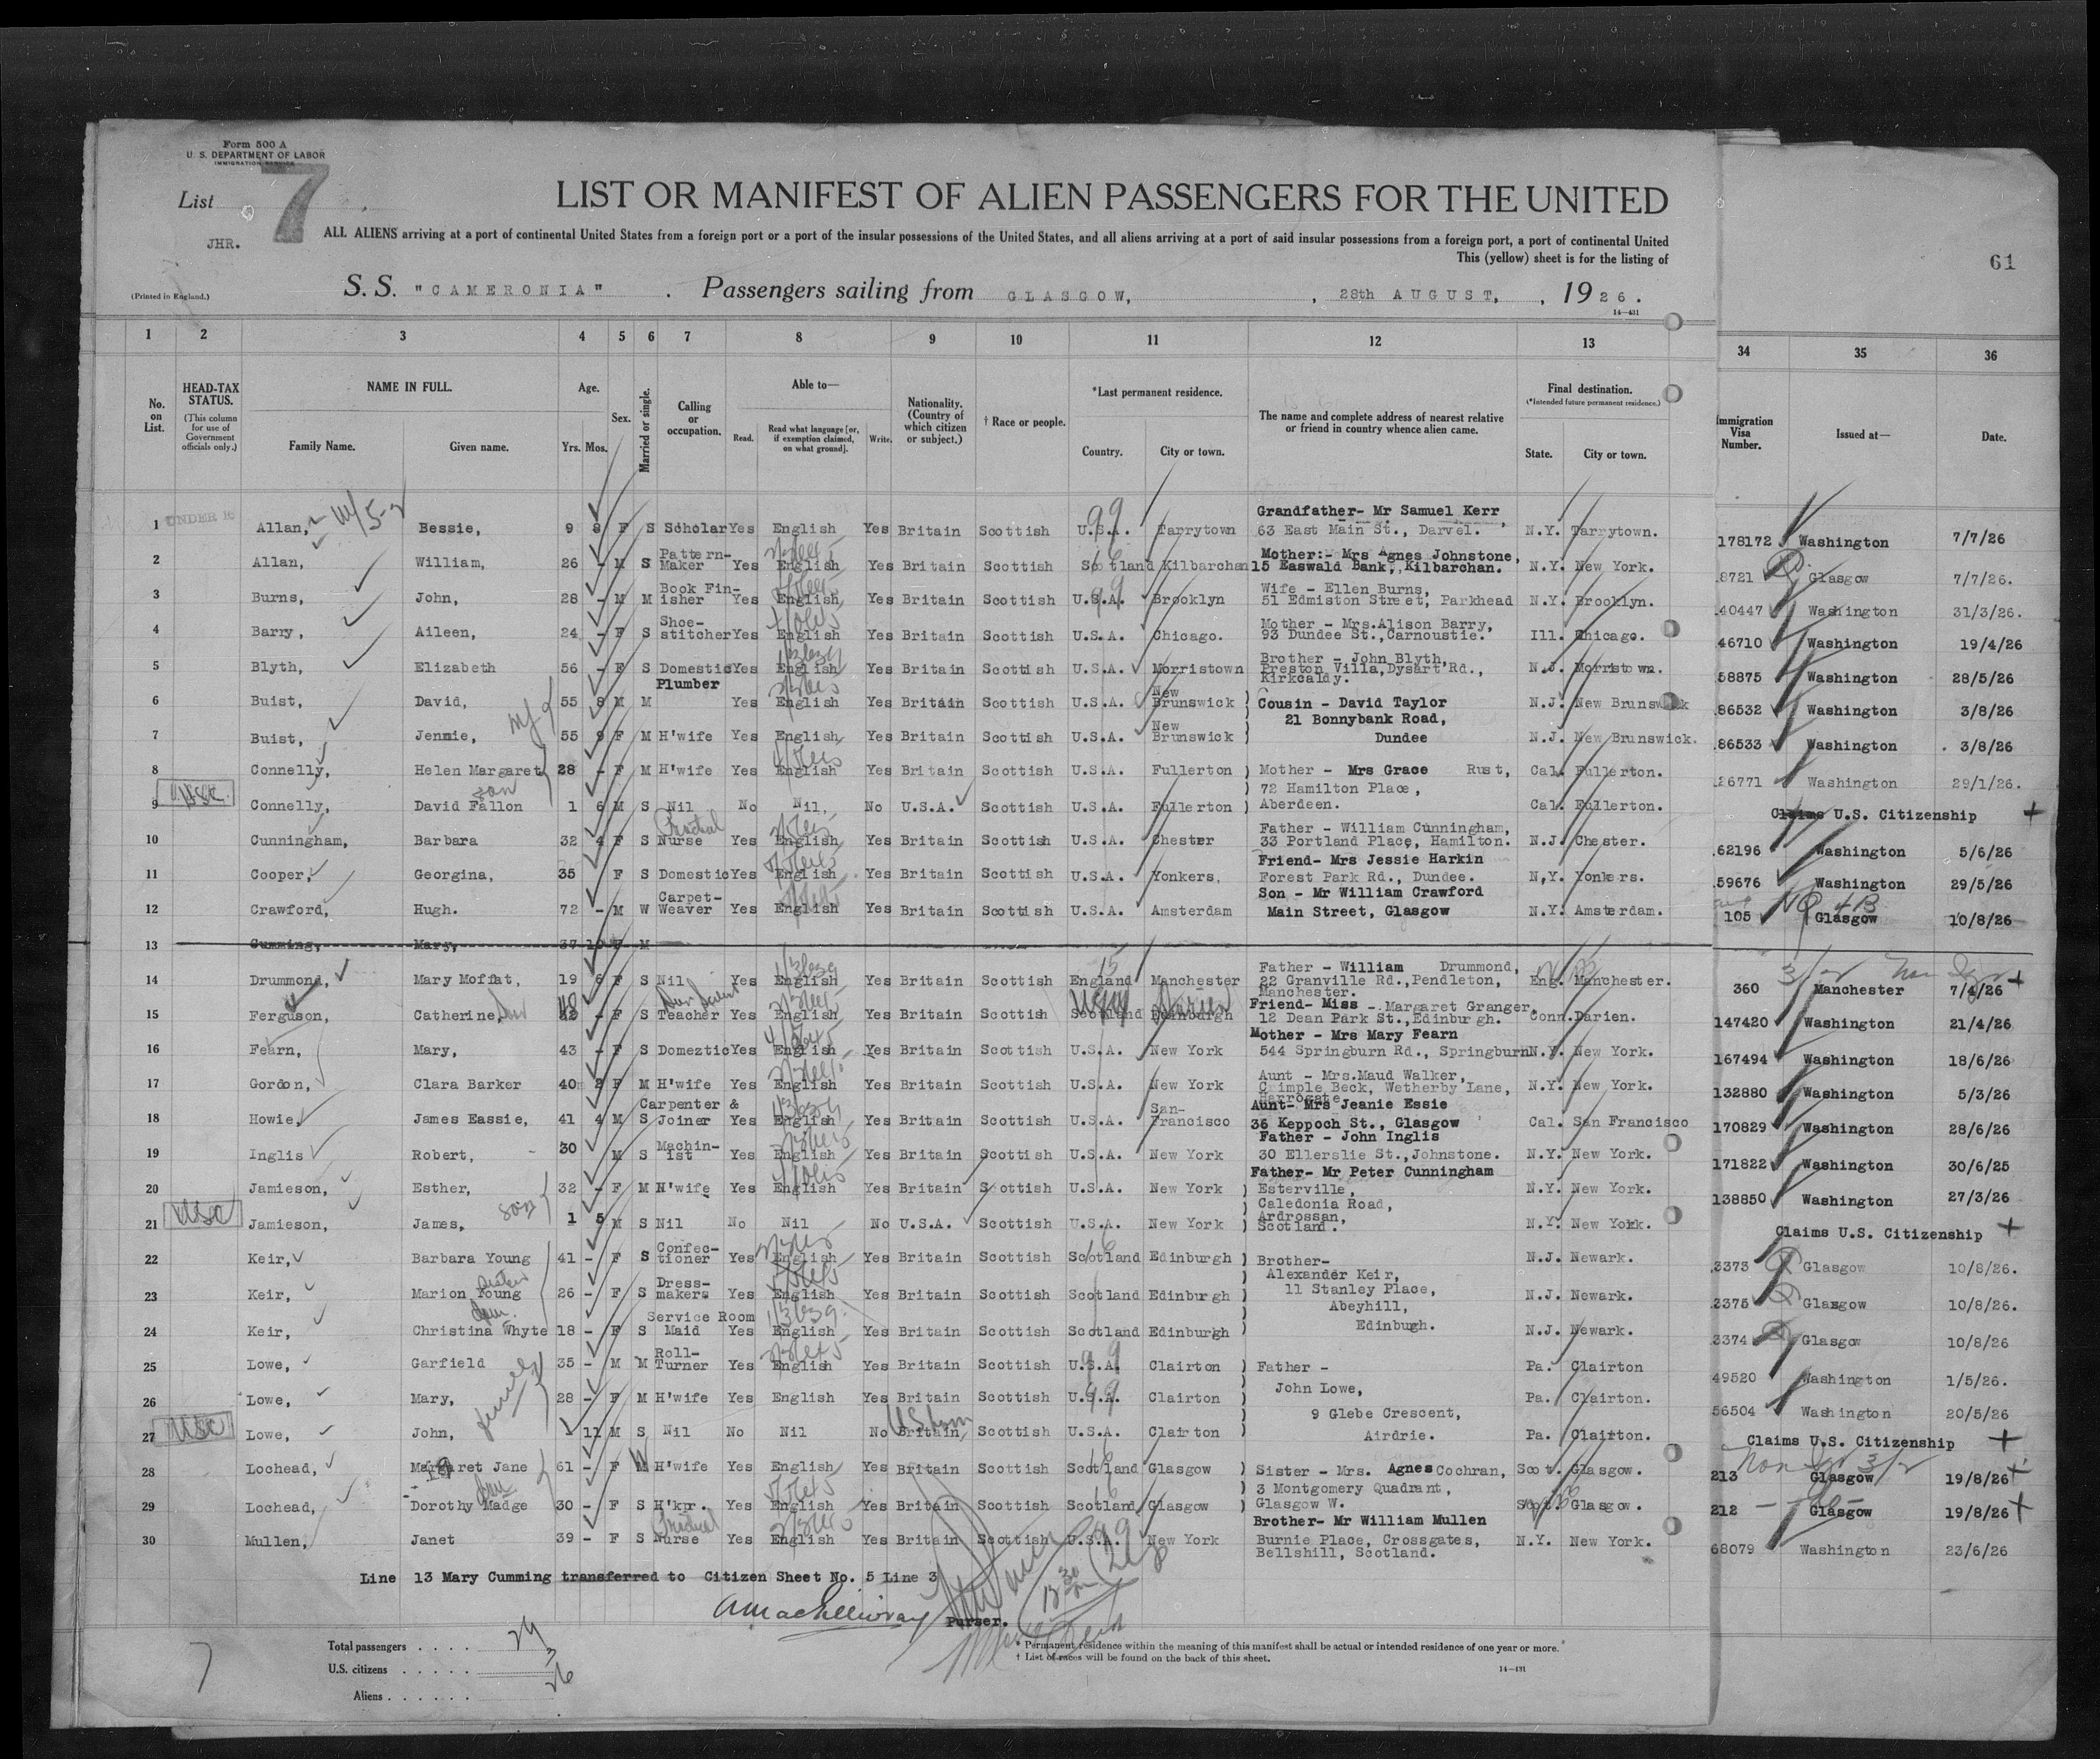 Form 500 A
U. S. DEPARTMENT OF LABOR
IMMIGRATION SERVICE
List 7
JHR.
(Printed in England.)
LIST OR MANIFEST OF ALIEN PASSENGERS FOR THE UNITED
ALL ALIENS arriving at a port of continental United States from a foreign port or a port of the insular possessions of the United States, and all aliens arriving at a port of said insular possessions from a foreign port, a port of continental United
This (yellow) sheet is for the listing of
61
S. S. "CAMERONIA" . Passengers sailing from GLASGOW, , 28th AUGUST, , 1926.
14—431
1 2 3 4 5 6 7 8 9 10 11 12 13 34 35 36
No. on List. HEAD-TAX STATUS. (This column for use of Government officials only.) NAME IN FULL. Family Name. Given name. Age. Yrs. Mos. Sex. Married or single. Calling or occupation. Able to— Read. Read what language [or, if exemption claimed, on what ground]. Write. Nationality. (Country of which citizen or subject.) † Race or people. *Last permanent residence. Country. City or town. The name and complete address of nearest relative or friend in country whence alien came. Final destination. (*Intended future permanent residence.) State. City or town. Immigration Visa Number. Issued at— Date.
1 UNDER 16 Allan, Bessie, 9 8 F S Scholar Yes English Yes Britain Scottish U.S.A. Tarrytown Grandfather- Mr Samuel Kerr, 63 East Main St., Darvel. N.Y. Tarrytown. 178172 Washington 7/7/26
2 Allan, William, 26 - M S Pattern-Maker Yes English Yes Britain Scottish Scotland Kilbarchan Mother:- Mrs Agnes Johnstone, 15 Easwald Bank, Kilbarchan. N.Y. New York. 8721 Glasgow 7/7/26.
3 Burns, John, 28 - M M Book Fin-isher Yes English Yes Britain Scottish U.S.A. Brooklyn Wife - Ellen Burns, 51 Edmiston Street, Parkhead N.Y. Brooklyn. 40447 Washington 31/3/26.
4 Barry, Aileen, 24 - F S Shoe-stitcher Yes English Yes Britain Scottish U.S.A. Chicago. Mother - Mrs.Alison Barry, 93 Dundee St.,Carnoustie. Ill. Chicago. 46710 Washington 19/4/26
5 Blyth, Elizabeth 56 - F S Domestic Yes English Yes Britain Scottish U.S.A. Morristown Brother - John Blyth, Preston Villa,Dysart Rd., Kirkcaldy. N.J. Morristown. 58875 Washington 28/5/26
6 Buist, David, 55 8 M M Plumber Yes English Yes Britain Scottish U.S.A. New Brunswick ) Cousin - David Taylor N.J. New Brunswick 86532 Washington 3/8/26
21 Bonnybank Road,
7 Buist, Jennie, 55 9 F M H'wife Yes English Yes Britain Scottish U.S.A. New Brunswick ) Dundee N.J. New Brunswick. 86533 Washington 3/8/26
8 Connelly, Helen Margaret 28 - F M H'wife Yes English Yes Britain Scottish U.S.A. Fullerton ) Mother - Mrs Grace Rust, Cal. Fullerton. 26771 Washington 29/1/26.
72 Hamilton Place,
9 USC Connelly, David Fallon son 1 6 M S Nil No Nil, No U.S.A. Scottish U.S.A. Fullerton ) Aberdeen. Cal. Fullerton. Claims U.S. Citizenship +
10 Cunningham, Barbara 32 4 F S Practical Nurse Yes English Yes Britain Scottish U.S.A. Chester Father - William Cunningham, 33 Portland Place, Hamilton. N.J. Chester. 62196 Washington 5/6/26
11 Cooper, Georgina, 35 F S Domestic Yes English Yes Britain Scottish U.S.A. Yonkers, Friend- Mrs Jessie Harkin Forest Park Rd., Dundee. N,Y. Yonkers. 59676 Washington 29/5/26
12 Crawford, Hugh. 72 - M W Carpet-Weaver Yes English Yes Britain Scottish U.S.A. Amsterdam Son - Mr William Crawford Main Street, Glasgow N.Y. Amsterdam. 105 Glasgow 10/8/26
13 Cumming, Mary, 37 10 F M
14 Drummond, Mary Moffat, 19 6 F S Nil Yes English Yes Britain Scottish England Manchester Father - William Drummond, 22 Granville Rd.,Pendleton, Manchester. Eng. Manchester. 360 Manchester 7/4/26 +
15 Ferguson, Catherine, F S Teacher Yes English Yes Britain Scottish Scotland Edinburgh Friend- Miss - Margaret Granger, 12 Dean Park St.,Edinburgh. Conn. Darien. 147420 Washington 21/4/26
16 Fearn, Mary, 43 - F S Domeztic Yes English Yes Britain Scottish U.S.A. New York Mother - Mrs Mary Fearn 544 Springburn Rd., Springburn N.Y. New York. 167494 Washington 18/6/26
17 Gordon, Clara Barker 40 2 F M H'wife Yes English Yes Britain Scottish U.S.A. New York Aunt - Mrs.Maud Walker, Crimple Beck, Wetherby Lane, Harrogate N.Y. New York. 132880 Washington 5/3/26
18 Howie, James Eassie, 41 4 M S Carpenter & Joiner Yes English Yes Britain Scottish U.S.A. San-Francisco Aunt- Mrs Jeanie Essie 36 Keppoch St., Glasgow Cal. San Francisco 170829 Washington 28/6/26
19 Inglis Robert, 30 M S Machin-ist Yes English Yes Britain Scottish U.S.A. New York Father - John Inglis 30 Ellerslie St.,Johnstone. N.Y. New York. 171822 Washington 30/6/25
20 Jamieson, Esther, 32 - F M H'wife Yes English Yes Britain Scottish U.S.A. New York ) Father- Mr Peter Cunningham Esterville, N.Y. New York. 138850 Washington 27/3/26
Caledonia Road,
21 USC Jamieson, James, son 1 5 M S Nil No Nil No U.S.A. Scottish U.S.A. New York ) Ardrossan, Scotland. N.Y. New York. Claims U.S. Citizenship +
22 Keir, Barbara Young 41 - F S Confec-tioner Yes English Yes Britain Scottish Scotland Edinburgh ) Brother- N.J. Newark. 3373 Glasgow 10/8/26.
Alexander Keir,
23 Keir, Marion Young sister 26 - F S Dress-makers Yes English Yes Britain Scottish Scotland Edinburgh 11 Stanley Place, N.J. Newark. 3375 Glasgow 10/8/26.
Abeyhill,
24 Keir, Christina Whyte 18 - F S Service Room Maid Yes English Yes Britain Scottish Scotland Edinburgh ) Edinburgh. N.J. Newark. 3374 Glasgow 10/8/26
25 Lowe, Garfield 35 - M M Roll-Turner Yes English Yes Britain Scottish U.S.A. Clairton ) Father - Pa. Clairton 49520 Washington 1/5/26.
26 Lowe, Mary, 28 - F M H'wife Yes English Yes Britain Scottish U.S.A. Clairton ) John Lowe, Pa. Clairton. 56504 Washington 20/5/26
9 Glebe Crescent,
27 USC Lowe, John, 11 M S Nil No Nil No Britain, US born Scottish U.S.A. Clairton ) Airdrie. Pa. Clairton. Claims U.S. Citizenship +
28 Lochead, Margaret Jane 61 - F M H'wife Yes English Yes Britain Scottish Scotland Glasgow ) Sister - Mrs. Agnes Cochran, Scot. Glasgow. 213 Glasgow 19/8/26 +
3 Montgomery Quadrant,
29 Lochead, Dorothy Madge 30 - F S H'kpr. Yes English Yes Britain Scottish Scotland Glasgow ) Glasgow W. Scot. Glasgow. 212 Glasgow 19/8/26 +
30 Mullen, Janet 39 - F S Practical Nurse Yes English Yes Britain Scottish U.S.A. New York Brother- Mr William Mullen Burnie Place, Crossgates, Bellshill, Scotland. N.Y. New York. 68079 Washington 23/6/26
Line 13 Mary Cumming transferred to Citizen Sheet No. 5 Line 3
Purser.
7
Total passengers . . . .
U.S. citizens . . . . . 3
Aliens . . . . . . . 26
* Permanent residence within the meaning of this manifest shall be actual or intended residence of one year or more.
† List of races will be found on the back of this sheet.
14—431